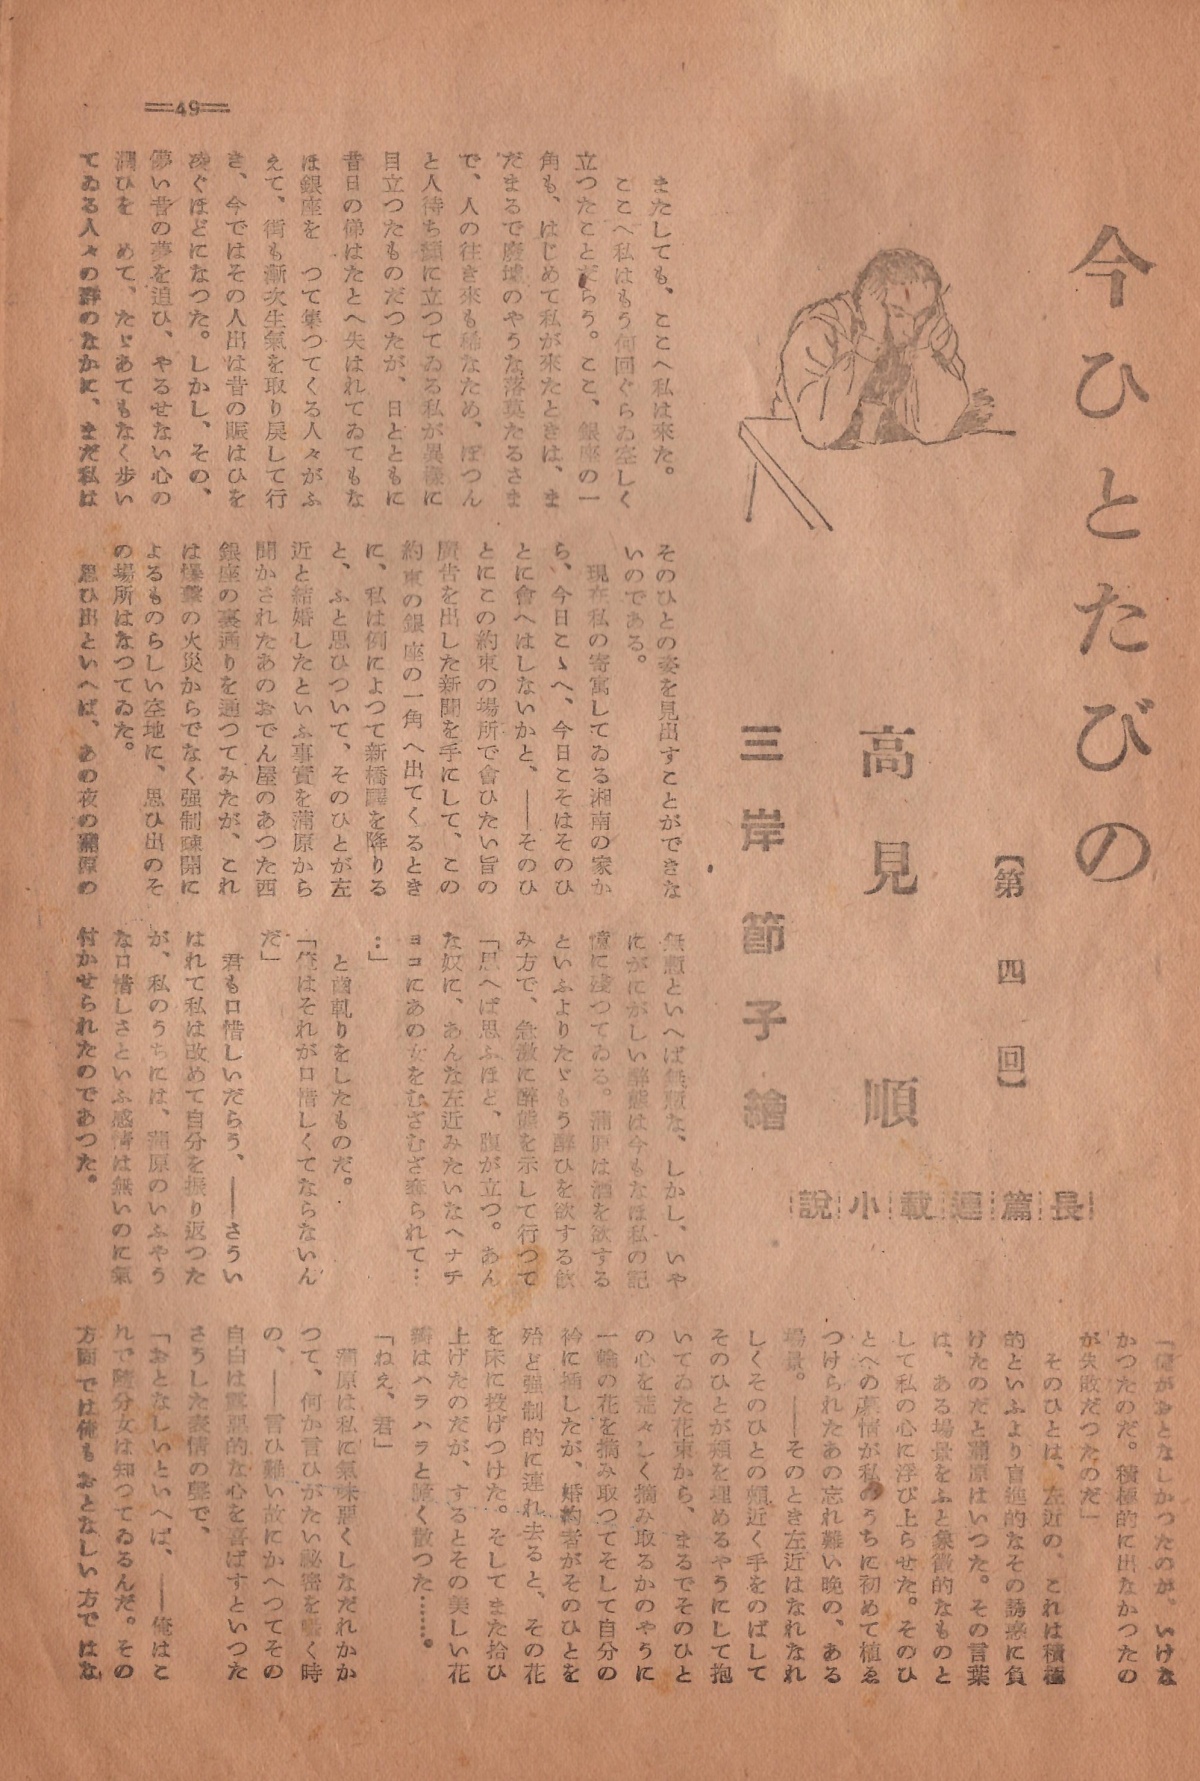 今ひとたびの
【第四回】
高見順
三岸節子繪
長篇連載小說
またしても、ここへ私は來た。
ここへ私はもう何回ぐらゐ空しく
立つたことだらう。ここ、銀座の一
角も、はじめて私が來たときは、ま
だまるで廢墟のやうな落莫たるさま
で、人の往き來も稀なため、ぽつん
と人待ち顏に立つてゐる私が異樣に
目立つたものだつたが、日とともに
昔日の俤はたとへ失はれてゐてもな
ほ銀座を　つて集つてくる人々がふ
えて、街も漸次生氣を取り戻して行
き、今ではその人出は昔の賑はひを
凌ぐほどになつた。しかし、その、
儚い昔の夢を追ひ、やるせない心の
潤ひを　めて、たゞあてもなく步い
てゐる人々の群のなかに、まだ私は
そのひとの姿を見出すことができな
いのである。
現在私の寄寓してゐる湘南の家か
ら、今日こゝへ、今日こそはそのひ
とに會へはしないかと、――そのひ
とにこの約束の場所で會ひたい旨の
廣告を出した新聞を手にして、この
約束の銀座の一角へ出てくるとき
に、私は例によつて新橋驛を降りる
と、ふと思ひついて、そのひとが左
近と結婚したといふ事實を蒲原から
聞かされたあのおでん屋のあつた西
銀座の裏通りを通つてみたが、これ
は爆擊の火災からでなく强制疎開に
よるものらしい空地に、思ひ出のそ
の場所はなつてゐた。
思ひ出といへば、あの夜の蒲原の
無慙といへば無慙な、しかし、いや
にがにがしい醉態は今もなほ私の記
憶に殘つてゐる。蒲原は酒を欲する
といふよりたゞもう醉ひを欲する飮
み方で、急激に醉態を示して行つて
「思へば思ふほど、腹が立つ。あん
な奴に、あんな左近みたいなヘナチ
ョコにあの女をむざむざ奪られて…
…」
と齒軋りをしたものだ。
「俺はそれが口惜しくてならないん
だ」
君も口惜しいだらう、――さうい
はれて私は改めて自分を振り返つた
が、私のうちには、蒲原のいふやう
な口惜しさといふ感情は無いのに氣
付かせられたのであつた。
「俺がおとなしかつたのが、いけな
かつたのだ。積極的に出なかつたの
が失敗だつたのだ」
そのひとは、左近の、これは積極
的といふより盲進的なその誘惑に負
けたのだと蒲原はいつた。その言葉
は、ある場景をふと象徵的なものと
して私の心に浮び上らせた。そのひ
とへの慕情が私のうちに初めて植ゑ
つけられたあの忘れ難い晚の、ある
場景。――そのとき左近はなれなれ
しくそのひとの頰近く手をのばして
そのひとが頰を埋めるやうにして抱
いてゐた花束から、まるでそのひと
の心を荒々しく摘み取るかのやうに
一輪の花を摘み取つてそして自分の
衿に揷したが、婚約者がそのひとを
殆ど强制的に連れ去ると、その花
を床に投げつけた。そしてまた拾ひ
上げたのだが、するとその美しい花
瓣はハラハラと脆く散つた……。
「ねえ、君」
蒲原は私に氣味惡くしなだれかか
つて、何か言ひがたい祕密を囁く時
の、――言ひ難い故にかへつてその
自白は露惡的な心を喜ばすといつた
さうした表情の聲で、
「おとなしいといへば、――俺はこ
れで隨分女は知つてゐるんだ。その
方面では俺もおとなしい方ではな
＝49＝